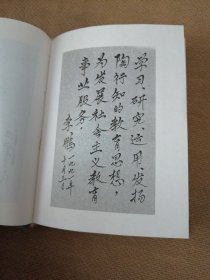 学习、研究、运用、发扬
陶行知的教育思想，
为发展社会主义教育
事业服务。
李鹏
一九九一年
十月二日